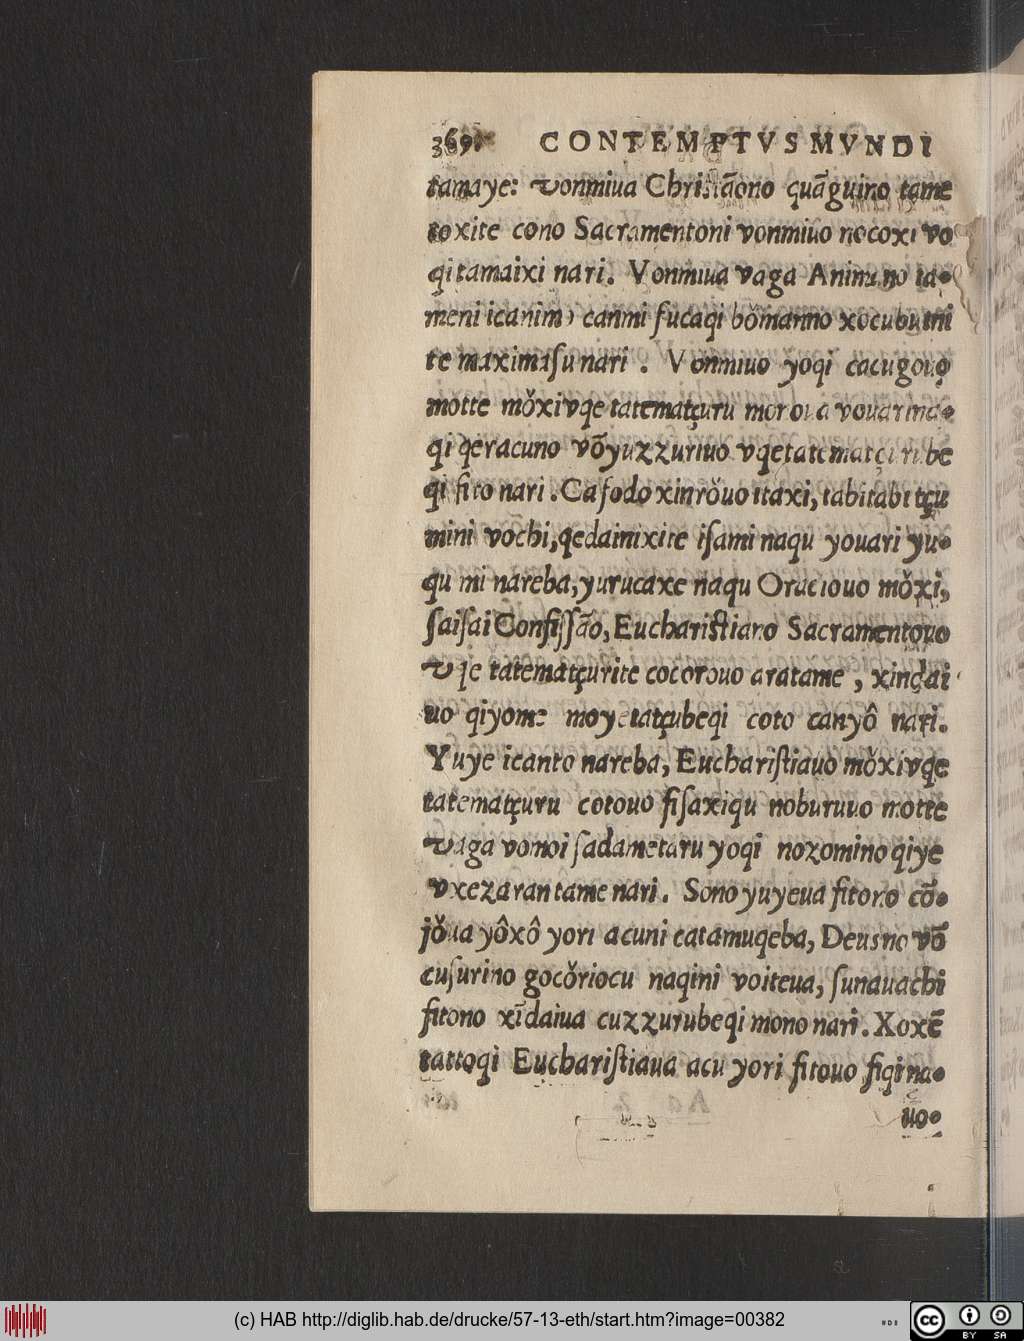 369. CONTEMPTVS MVNDI
tamaye: vonmiua Chriſtãono quãguino tame
toxite cono Sacramentoni vonmiuo nocoxi vo
qi tamaixi nari. Vonmiua vaga Animano ta-
meni icanimo canmi fucaqi bŏmanno xocubutni
te maximaſu nari. Vonmiuo yoqi cacugouo
motte mŏxivqe tatematçuru morova vouarina-
qi qeracuno võyuzzuriuo vqetatematçuribe
qi fito nari. Ca fodo xinrŏuo itaxi, tabitabi tçu
mini vochi, qedainixite iſami naqu youari yu-
qu mi nareba, yurucaxe naqu Oraciouo mŏxi,
ſaiſai Confiſſão, Euchariſtiano Sacramentouo
vqe tatematçurite cocorouo aratame, xindai
uo qiyome moyetatçubeqi coto canyô nari.
Yuye icanto nareba, Euchariſtiauo mŏxivqe
tatematçuru cotouo fiſaxiqu noburuuo motte
vaga vomoi ſadametaru yoqi nozomino qiye
vxezaran tame nari. Sono yuyeua fitono cõ-
jŏua yôxô yori acuni catamuqeba, Deusno võ
cuſurino gocŏriocu naqini voiteua, ſunauachi
fitono xĩdaiua cuzzurubeqi mono nari. Xoxẽ
tattoqi Euchariſtiaua acu yori fitouo fiqi na-
uo-
(c) HAB http://diglib.hab.de/drucke/57-13-eth/start.htm?image=00382
cc BY SA